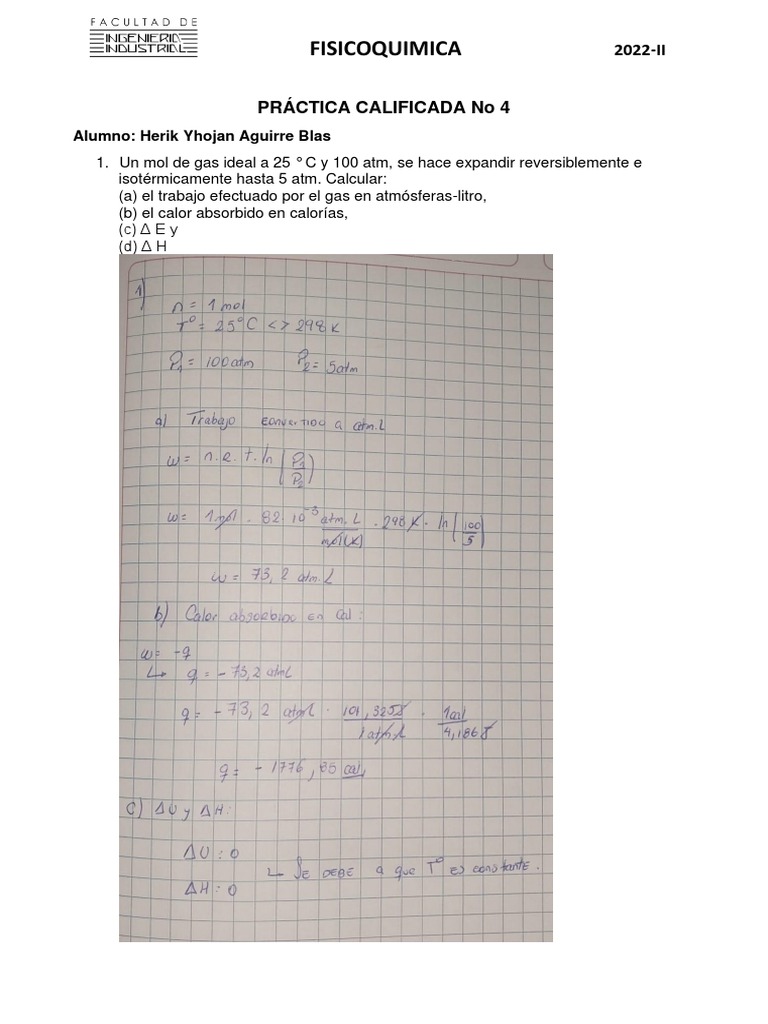 FACULTAD DE
INGENIERIA
INDUSTRIAL
FISICOQUIMICA
2022-II
PRÁCTICA CALIFICADA No 4
Alumno: Herik Yhojan Aguirre Blas
1. Un mol de gas ideal a 25 ° C y 100 atm, se hace expandir reversiblemente e
isotérmicamente hasta 5 atm. Calcular:
(a) el trabajo efectuado por el gas en atmósferas-litro,
(b) el calor absorbido en calorías,
(c) Δ E y
(d) Δ H
1)
n = 1 mol
T° = 25°C <> 298 K
P1 = 100 atm P2 = 5 atm
a) Trabajo convertido a atm.L
w = n.R.t.ln (P1/P2)
w = 1 mol . 82.10^-3 atm.L/mol(K) . 298 K . ln (100/5)
w = 73,2 atm.L
b) Calor absorbido en cal:
w = -q
↳ q = - 73,2 atmL
q = - 73,2 atmL . 101,325J/1 atm.L . 1cal/4,186J
q = - 1776,85 cal,
c) ΔU y ΔH:
ΔU: 0
↳ SE DEBE a que T° es constante.
ΔH: 0